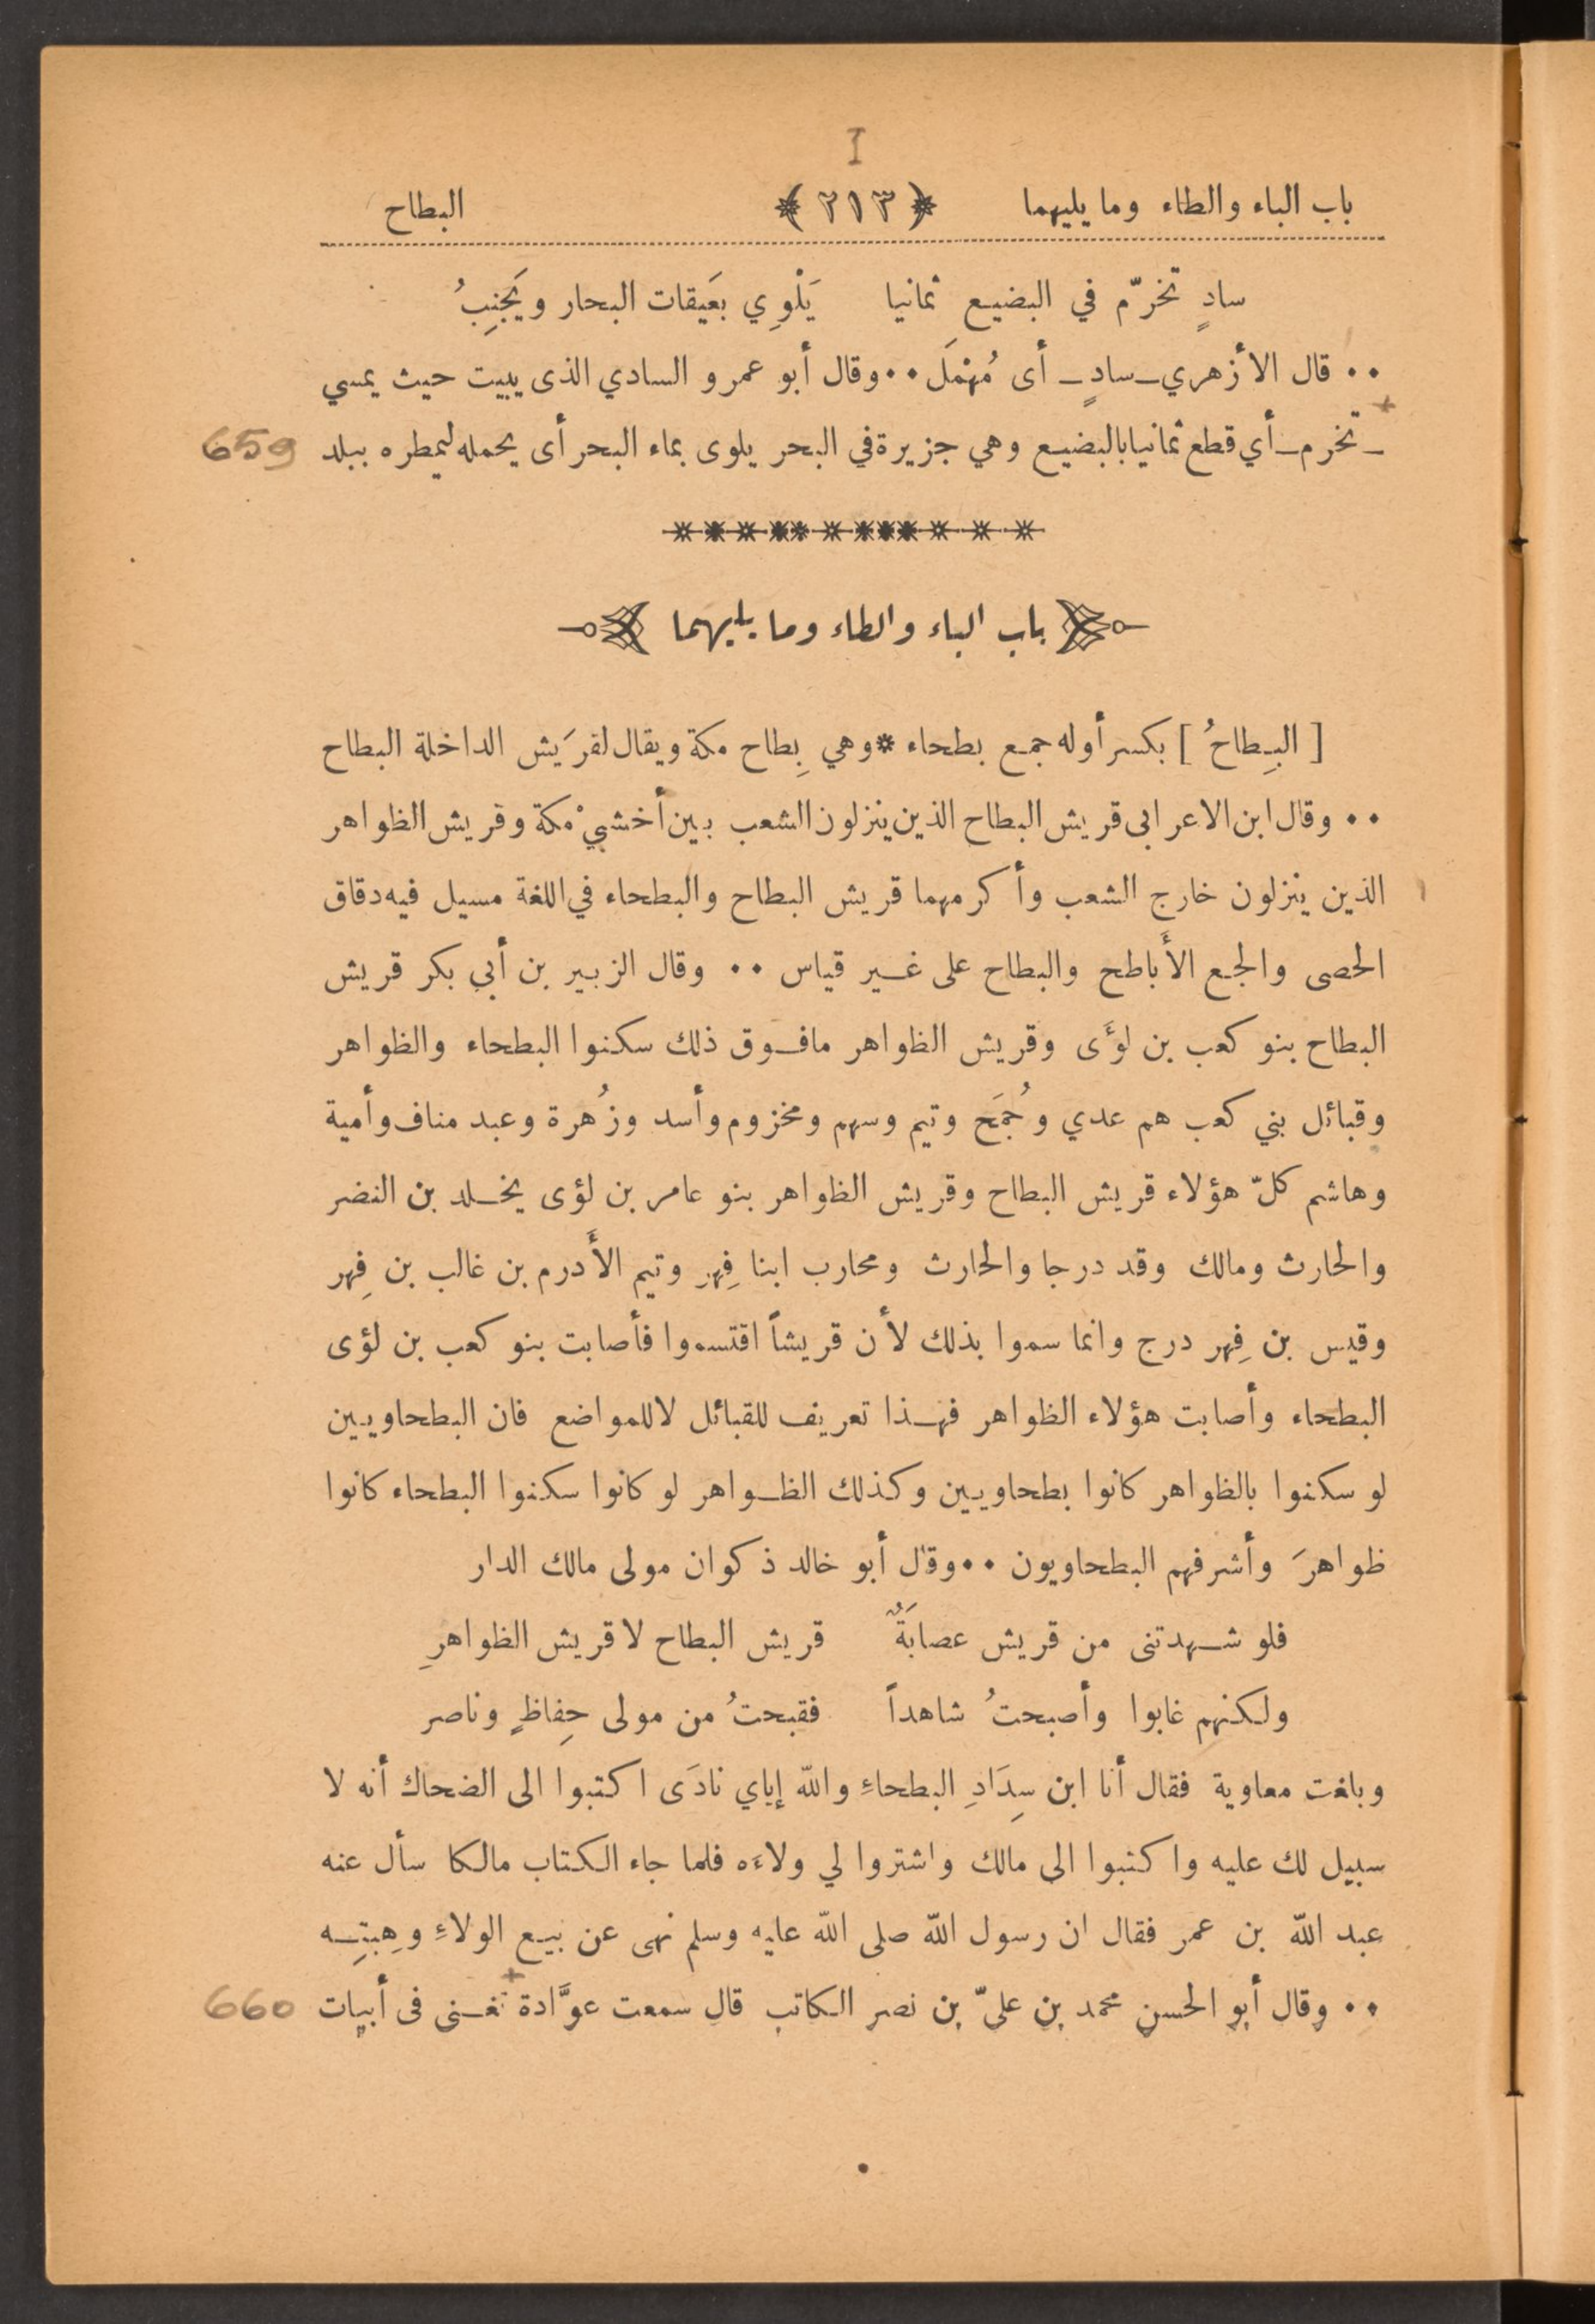 I
باب الباء والطاء وما يليهما ﴿ ٢١٣ ﴾ البطاح
سادٍ تخرّم في البضيع ثمانيا يَلْوِي بعَيقات البحار ويَجنِبُ
٠٠ قال الأزهري ــ سادٍ ــ أى مُهْمَل ٠٠ وقال أبو عمرو السادي الذى يبيت حيث يمسي
ــ تخرم ــ أي قطع ثمانيا بالبضيع وهي جزيرة في البحر يلوى بماء البحر أى يحمله ليمطره ببلد 659
باب الباء والطاء وما يليهما
[ البِطاحُ ] بكسر أوله جمع بطحاء * وهي بِطاح مكة ويقال لقرَيش الداخلة البطاح
٠٠ وقال ابن الاعرابى قريش البطاح الذين ينزلون الشعب بين أخشبيْ مكة وقريش الظواهر
الذين ينزلون خارج الشعب وأكرمهما قريش البطاح والبطحاء في اللغة مسيل فيه دقاق
الحصى والجمع الأَباطح والبطاح على غير قياس ٠٠ وقال الزبير بن أبي بكر قريش
البطاح بنو كعب بن لؤَى وقريش الظواهر مافوق ذلك سكنوا البطحاء والظواهر
وقبائل بني كعب هم عدي وجُمَح وتيم وسهم ومخزوم وأسد وزُهرة وعبد مناف وأمية
وهاشم كلّ هؤلاء قريش البطاح وقريش الظواهر بنو عامر بن لؤى يخلد بن النضر
والحارث ومالك وقد درجا والحارث ومحارب ابنا فِهرِ وتيم الأَدرم بن غالب بن فِهر
وقيس بن فِهر درج وانما سموا بذلك لأن قريشاً اقتسموا فأصابت بنو كعب بن لؤى
البطحاء وأصابت هؤلاء الظواهر فهذا تعريف للقبائل لا للمواضع فان البطحاويين
لو سكنوا بالظواهر كانوا بطحاويين وكذلك الظواهر لو كانوا سكنوا البطحاء كانوا
ظواهرَ وأشرفهم البطحاويون ٠٠ وقال أبو خالد ذكوان مولى مالك الدار
فلو شهدتنى من قريش عصابَةٌ قريش البطاح لا قريش الظواهرِ
ولكنهم غابوا وأصبحتُ شاهداً فقبحتُ من مولى حِفاظٍ وناصر
وبلغت معاوية فقال أنا ابن سِدَادِ البطحاءِ والله إياي نادَى اكتبوا الى الضحاك أنه لا
سبيل لك عليه واكتبوا الى مالك واشتروا لي ولاءَه فلما جاء الكتاب مالكا سأل عنه
عبد الله بن عمر فقال ان رسول الله صلى الله عليه وسلم نهى عن بيع الولاءِ وهِبتِه
٠٠ وقال أبو الحسن محمد بن عليّ بن نصر الكاتب قال سمعت عوَّادة تغنى فى أبيات 660